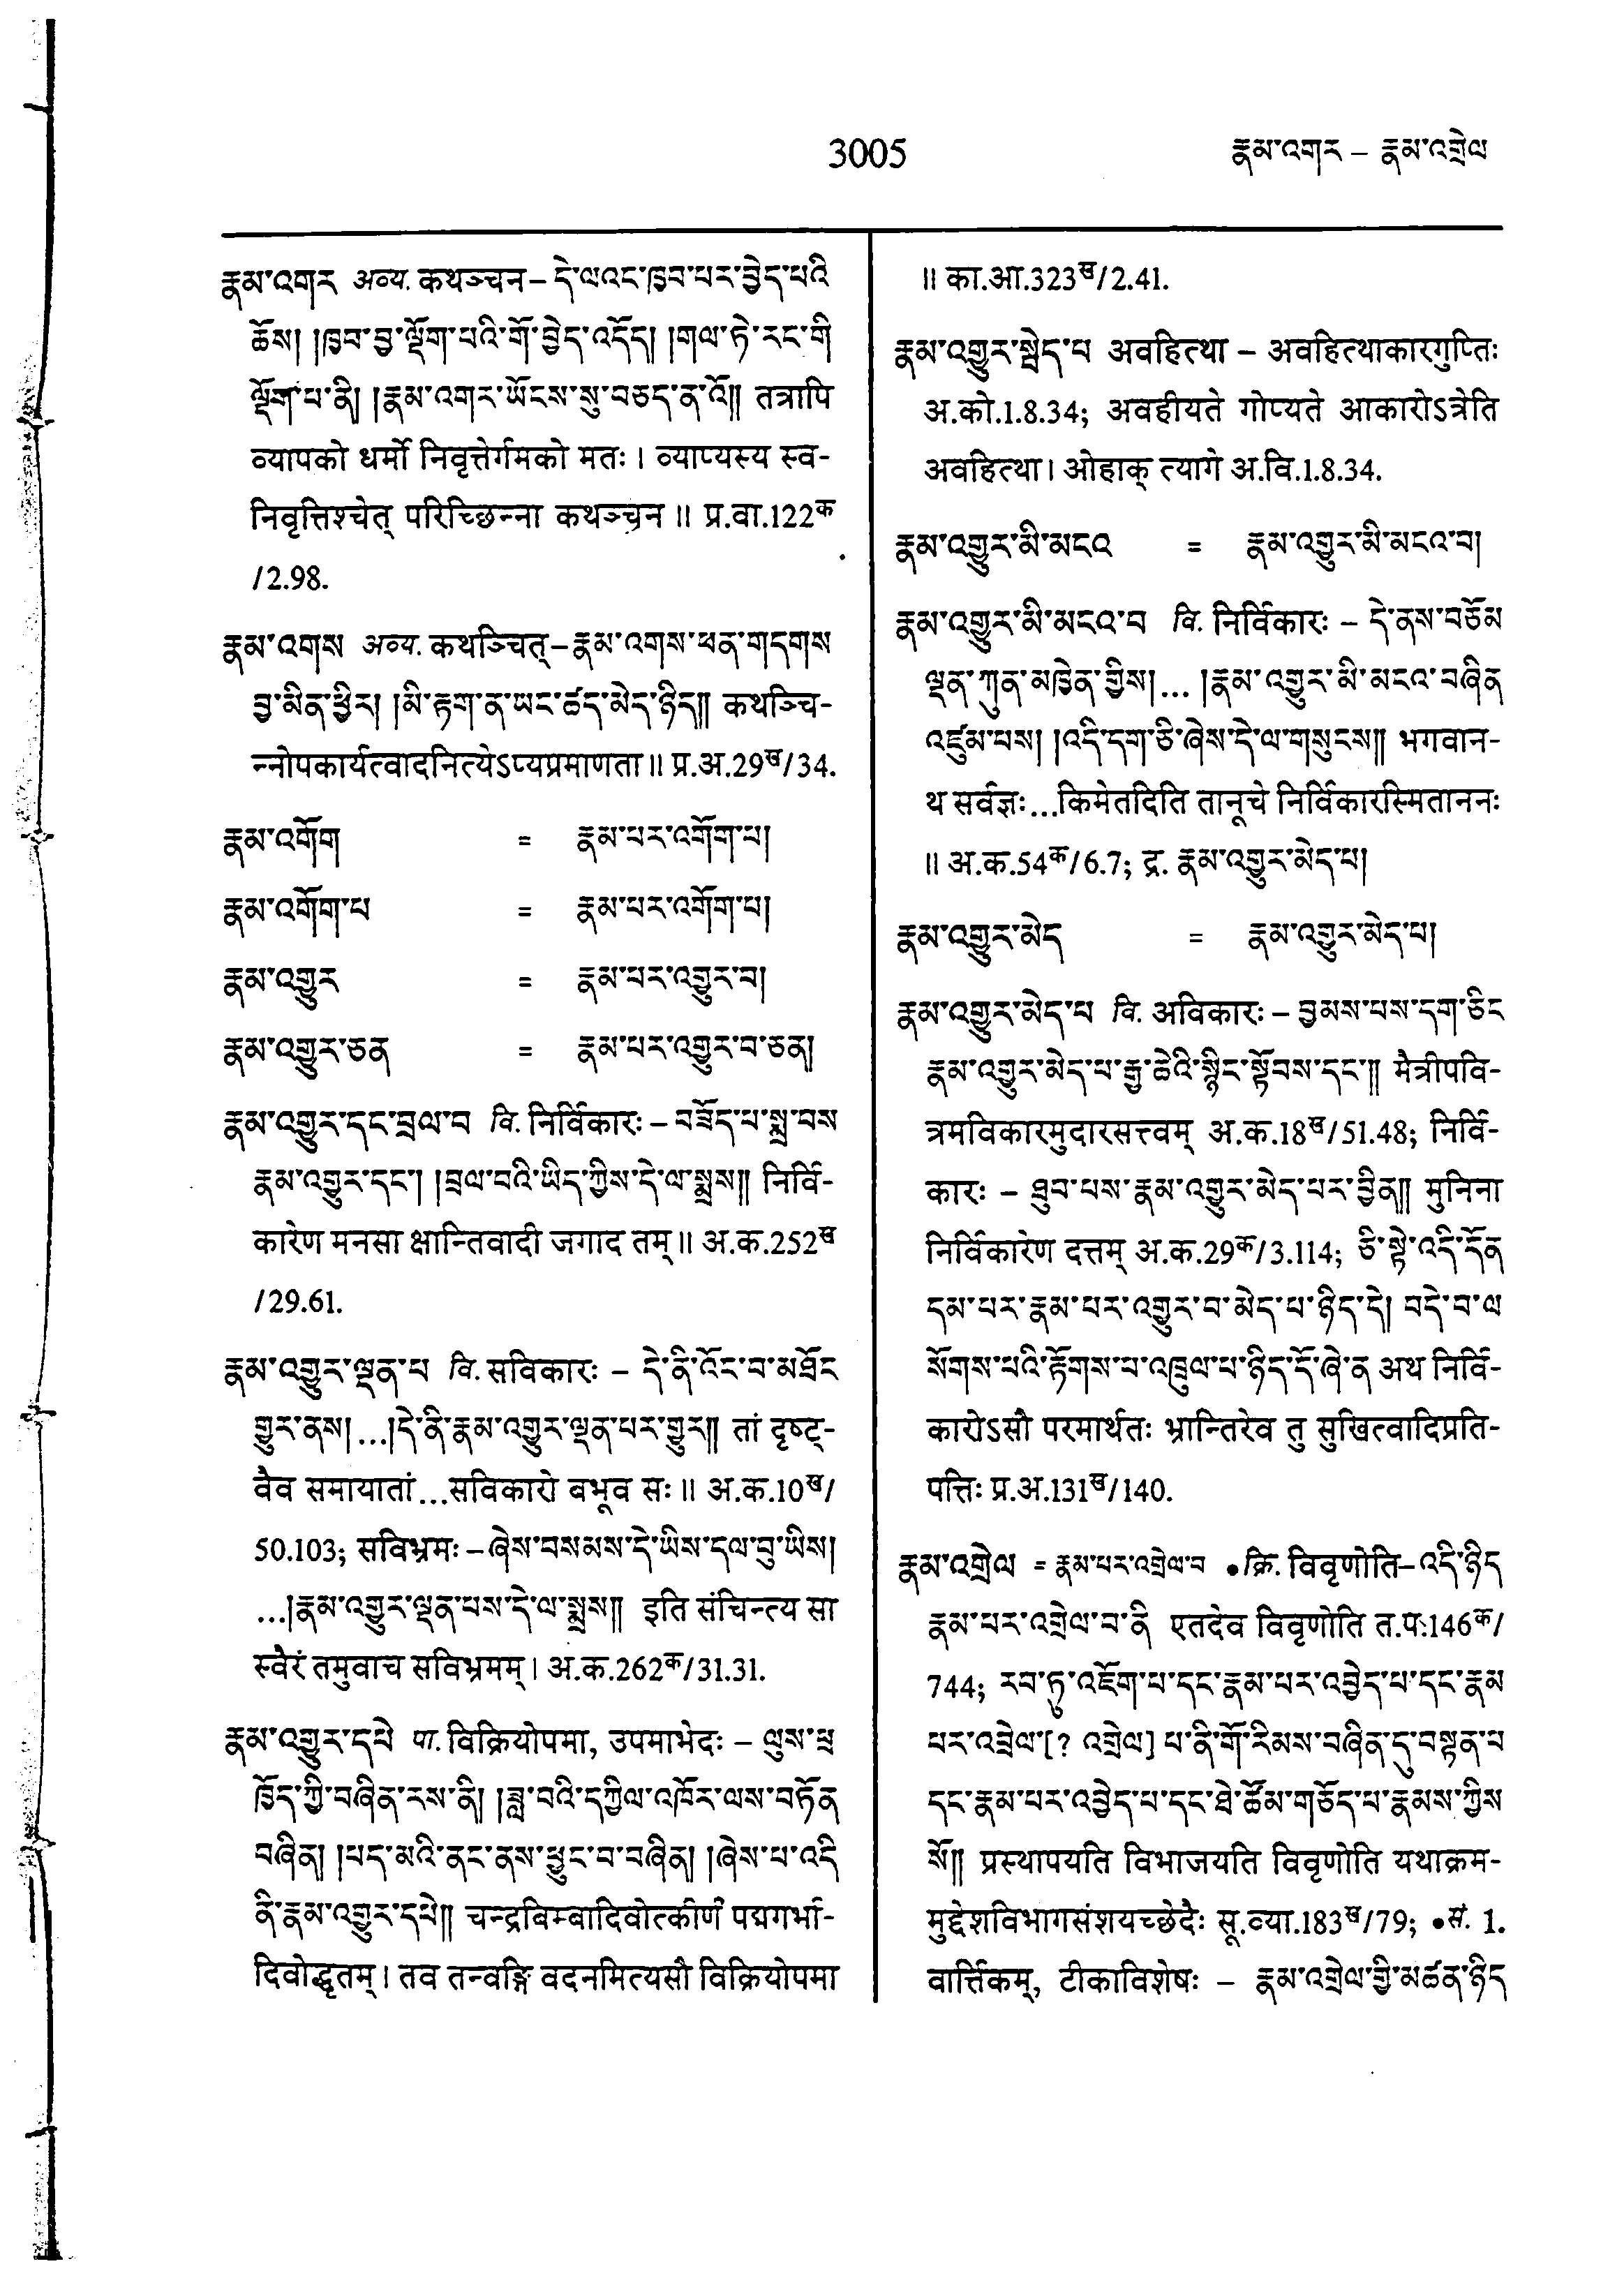 3005
རྣམ་འགར – རྣམ་འགྲེལ
རྣམ་འགར अव्य. कथञ्चन – དེ་ལའང་ཁྱབ་པར་བྱེད་པའི
ཆོས། །ཁྱབ་བྱ་ལྡོག་པའི་གོ་བྱེད་འདོད། །གལ་ཏེ་རང་གི
ལྡོག་པ་ནི། །རྣམ་འགར་ཡོངས་སུ་བཅད་ན་འོ༎ तत्रापि
व्यापको धर्मो निवृत्तेर्गमको मतः । व्याप्यस्य स्व-
निवृत्तिश्चेत् परिच्छिन्ना कथञ्चन ॥ प्र.वा.122क
/2.98.
རྣམ་འགས अव्य. कथञ्चित् – རྣམ་འགས་ཕན་གདགས
བྱ་མིན་ཕྱིར། །མི་རྟག་ན་ཡང་ཚད་མེད་ཉིད༎ कथञ्चि-
न्नोपकार्यत्वादनित्येऽप्यप्रमाणता ॥ प्र.अ.29ख/34.
རྣམ་འགོག = རྣམ་པར་འགོག་པ།
རྣམ་འགོག་པ = རྣམ་པར་འགོག་པ།
རྣམ་འགྱུར = རྣམ་པར་འགྱུར་བ།
རྣམ་འགྱུར་ཅན = རྣམ་པར་འགྱུར་བ་ཅན།
རྣམ་འགྱུར་དང་བྲལ་བ वि. निर्विकारः – བཟོད་པ་སྨྲ་བས
རྣམ་འགྱུར་དང་། །བྲལ་བའི་ཡིད་ཀྱིས་དེ་ལ་སྨྲས༎ निर्वि-
कारेण मनसा क्षान्तिवादी जगाद तम् ॥ अ.क.252ख
/29.61.
རྣམ་འགྱུར་ལྡན་པ वि. सविकारः – དེ་ནི་འོང་བ་མཐོང
གྱུར་ནས། …།དེ་ནི་རྣམ་འགྱུར་ལྡན་པར་གྱུར༎ तां दृष्ट्-
वैव समायातां…सविकारो बभूव सः ॥ अ.क.10ख/
50.103; सविभ्रमः – ཞེས་བསམས་དེ་ཡིས་དལ་བུ་ཡིས།
…།རྣམ་འགྱུར་ལྡན་པས་དེ་ལ་སྨྲས༎ इति संचिन्त्य सा
स्वैरं तमुवाच सविभ्रमम् । अ.क.262क/31.31.
རྣམ་འགྱུར་དཔེ पा. विक्रियोपमा, उपमाभेदः – ལུས་ཕྲ
ཁྱོད་ཀྱི་བཞིན་རས་ནི། །ཟླ་བའི་དཀྱིལ་འཁོར་ལས་བཏོན
བཞིན། །པད་མའི་ནང་ནས་ཕྱུང་བ་བཞིན། །ཞེས་པ་འདི
ནི་རྣམ་འགྱུར་དཔེ༎ चन्द्रबिम्बादिवोत्कीर्णं पद्मगर्भा-
दिवोद्धृतम् । तव तन्वङ्गि वदनमित्यसौ विक्रियोपमा
॥ का.आ.323ख/2.41.
རྣམ་འགྱུར་སྦེད་པ अवहित्था – अवहित्थाकारगुप्तिः
अ.को.1.8.34; अवहीयते गोप्यते आकारोऽत्रेति
अवहित्था । ओहाक् त्यागे अ.वि.1.8.34.
རྣམ་འགྱུར་མི་མངའ = རྣམ་འགྱུར་མི་མངའ་བ།
རྣམ་འགྱུར་མི་མངའ་བ वि. निर्विकारः – དེ་ནས་བཅོམ
ལྡན་ཀུན་མཁྱེན་གྱིས། … །རྣམ་འགྱུར་མི་མངའ་བཞིན
འཛུམ་པས། །འདི་དག་ཅི་ཞེས་དེ་ལ་གསུངས༎ भगवान-
थ सर्वज्ञः…किमेतदिति तानूचे निर्विकारस्मिताननः
॥ अ.क.54क/6.7; द्र. རྣམ་འགྱུར་མེད་པ།
རྣམ་འགྱུར་མེད = རྣམ་འགྱུར་མེད་པ།
རྣམ་འགྱུར་མེད་པ वि. अविकारः – བྱམས་པས་དག་ཅིང
རྣམ་འགྱུར་མེད་པ་རྒྱ་ཆེའི་སྙིང་སྟོབས་དང་༎ मैत्रीपवि-
त्रमविकारमुदारसत्त्वम् अ.क.18ख/51.48; निर्वि-
कारः – ཐུབ་པས་རྣམ་འགྱུར་མེད་པར་བྱིན༎ मुनिना
निर्विकारेण दत्तम् अ.क.29क/3.114; ཅི་སྟེ་འདི་དོན
དམ་པར་རྣམ་པར་འགྱུར་བ་མེད་པ་ཉིད་དེ། བདེ་བ་ལ
སོགས་པའི་རྟོགས་པ་འཁྲུལ་པ་ཉིད་དོ་ཞེ་ན अथ निर्वि-
कारोऽसौ परमार्थतः भ्रान्तिरेव तु सुखित्वादिप्रति-
पत्तिः प्र.अ.131ख/140.
རྣམ་འགྲེལ = རྣམ་པར་འགྲེལ་བ •क्रि. विवृणोति – འདི་ཉིད
རྣམ་པར་འགྲེལ་བ་ནི एतदेव विवृणोति त.प.146क/
744; རབ་ཏུ་འཇོག་པ་དང་རྣམ་པར་འབྱེད་པ་དང་རྣམ
པར་འབྲེལ་[? འགྲེལ] པ་ནི་གོ་རིམས་བཞིན་དུ་བསྟན་པ
དང་རྣམ་པར་འབྱེད་པ་དང་ཐེ་ཚོམ་གཅོད་པ་རྣམས་ཀྱིས
སོ༎ प्रस्थापयति विभाजयति विवृणोति यथाक्रम-
मुद्देशविभागसंशयच्छेदैः सू.व्या.183ख/79; •सं. 1.
वार्त्तिकम्, टीकाविशेषः – རྣམ་འགྲེལ་གྱི་མཚན་ཉིད